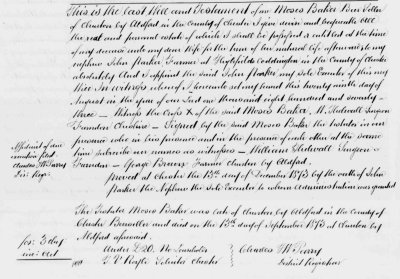 This is the Last Will and Testament of me Moses Baker
of Churton by Aldford in the County of Chester I give devise and bequeath all
the real and personal estate of which I shall be possessed or entitled at the time
of my decease unto my dear Wife for the term of her natural life afterwards to my
nephew John Parker Farmer at Coddington in the County of Chester
absolutely And I appoint the said John Parker my sole Executor of this my
Will In witness whereof I hereunto set my hand this twenty ninth day of
August in the year of our Lord one thousand eight hundred and seventy
three – the X of the said Moses Baker, W. Surgeon
Farndon Cheshire – Signed by the said Moses Baker the testator in our
presence who in his presence and in the presence of each other at the same
time subscribe our names as witnesses – William Surgeon
Farndon – George Farmer Churton by Aldford.
Affidavit of due
execution filed
Charles W. Parry
Dis: Regr:
Proved at Chester the 13th day of December 1873 by the oath of John
Parker the Nephew the sole Executor to whom Administration was granted
The Testator Moses Baker was late of Churton by Aldford in the County of
Chester and died on the 13th day of September 1873 at Churton by
Aldford aforesaid.
for: 3 day
Under £20. No Leaseholds
Solicitor Chester
Charles W. Parry
District Registrar